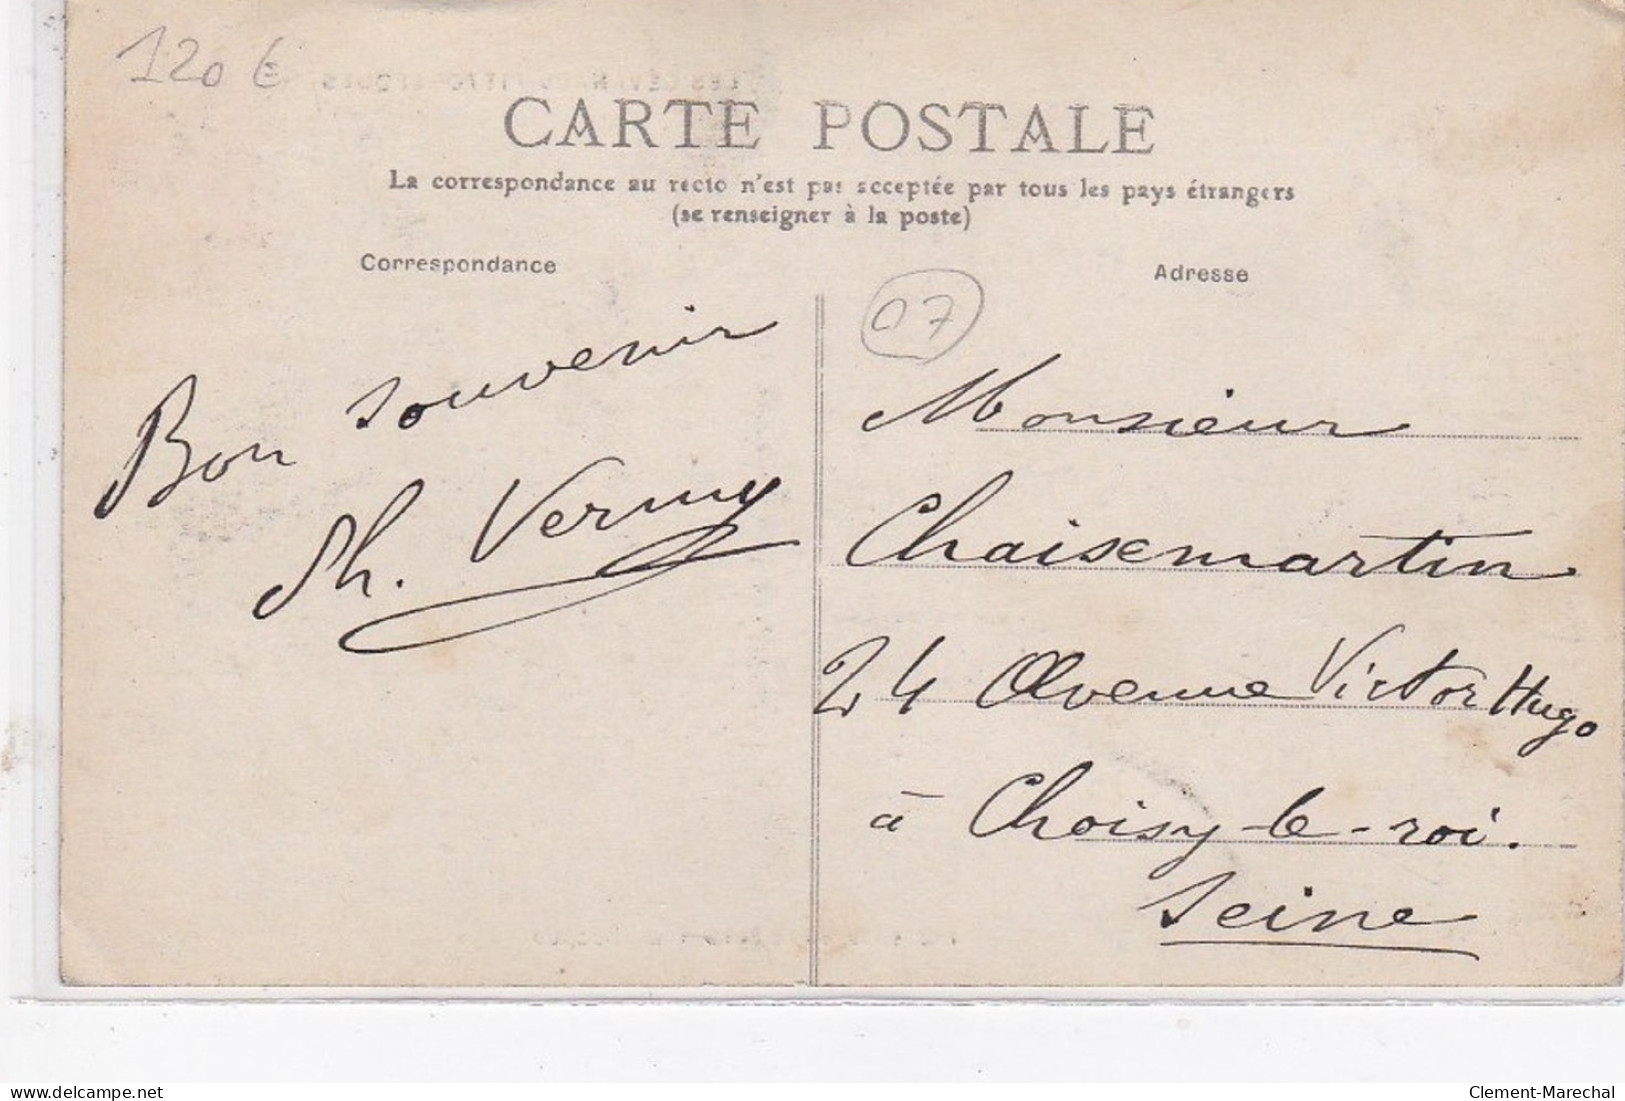 120 €
CARTE POSTALE
La correspondance au recto n'est pas acceptée par tous les pays étrangers
(se renseigner à la poste)
Correspondance
Bon souvenir
Ph. Vermy
Adresse
07
Monsieur
Chaisemartin
24 Avenue Victor Hugo
à Choisy-le-roi.
Seine
delcampe.net
Clement-Marechal